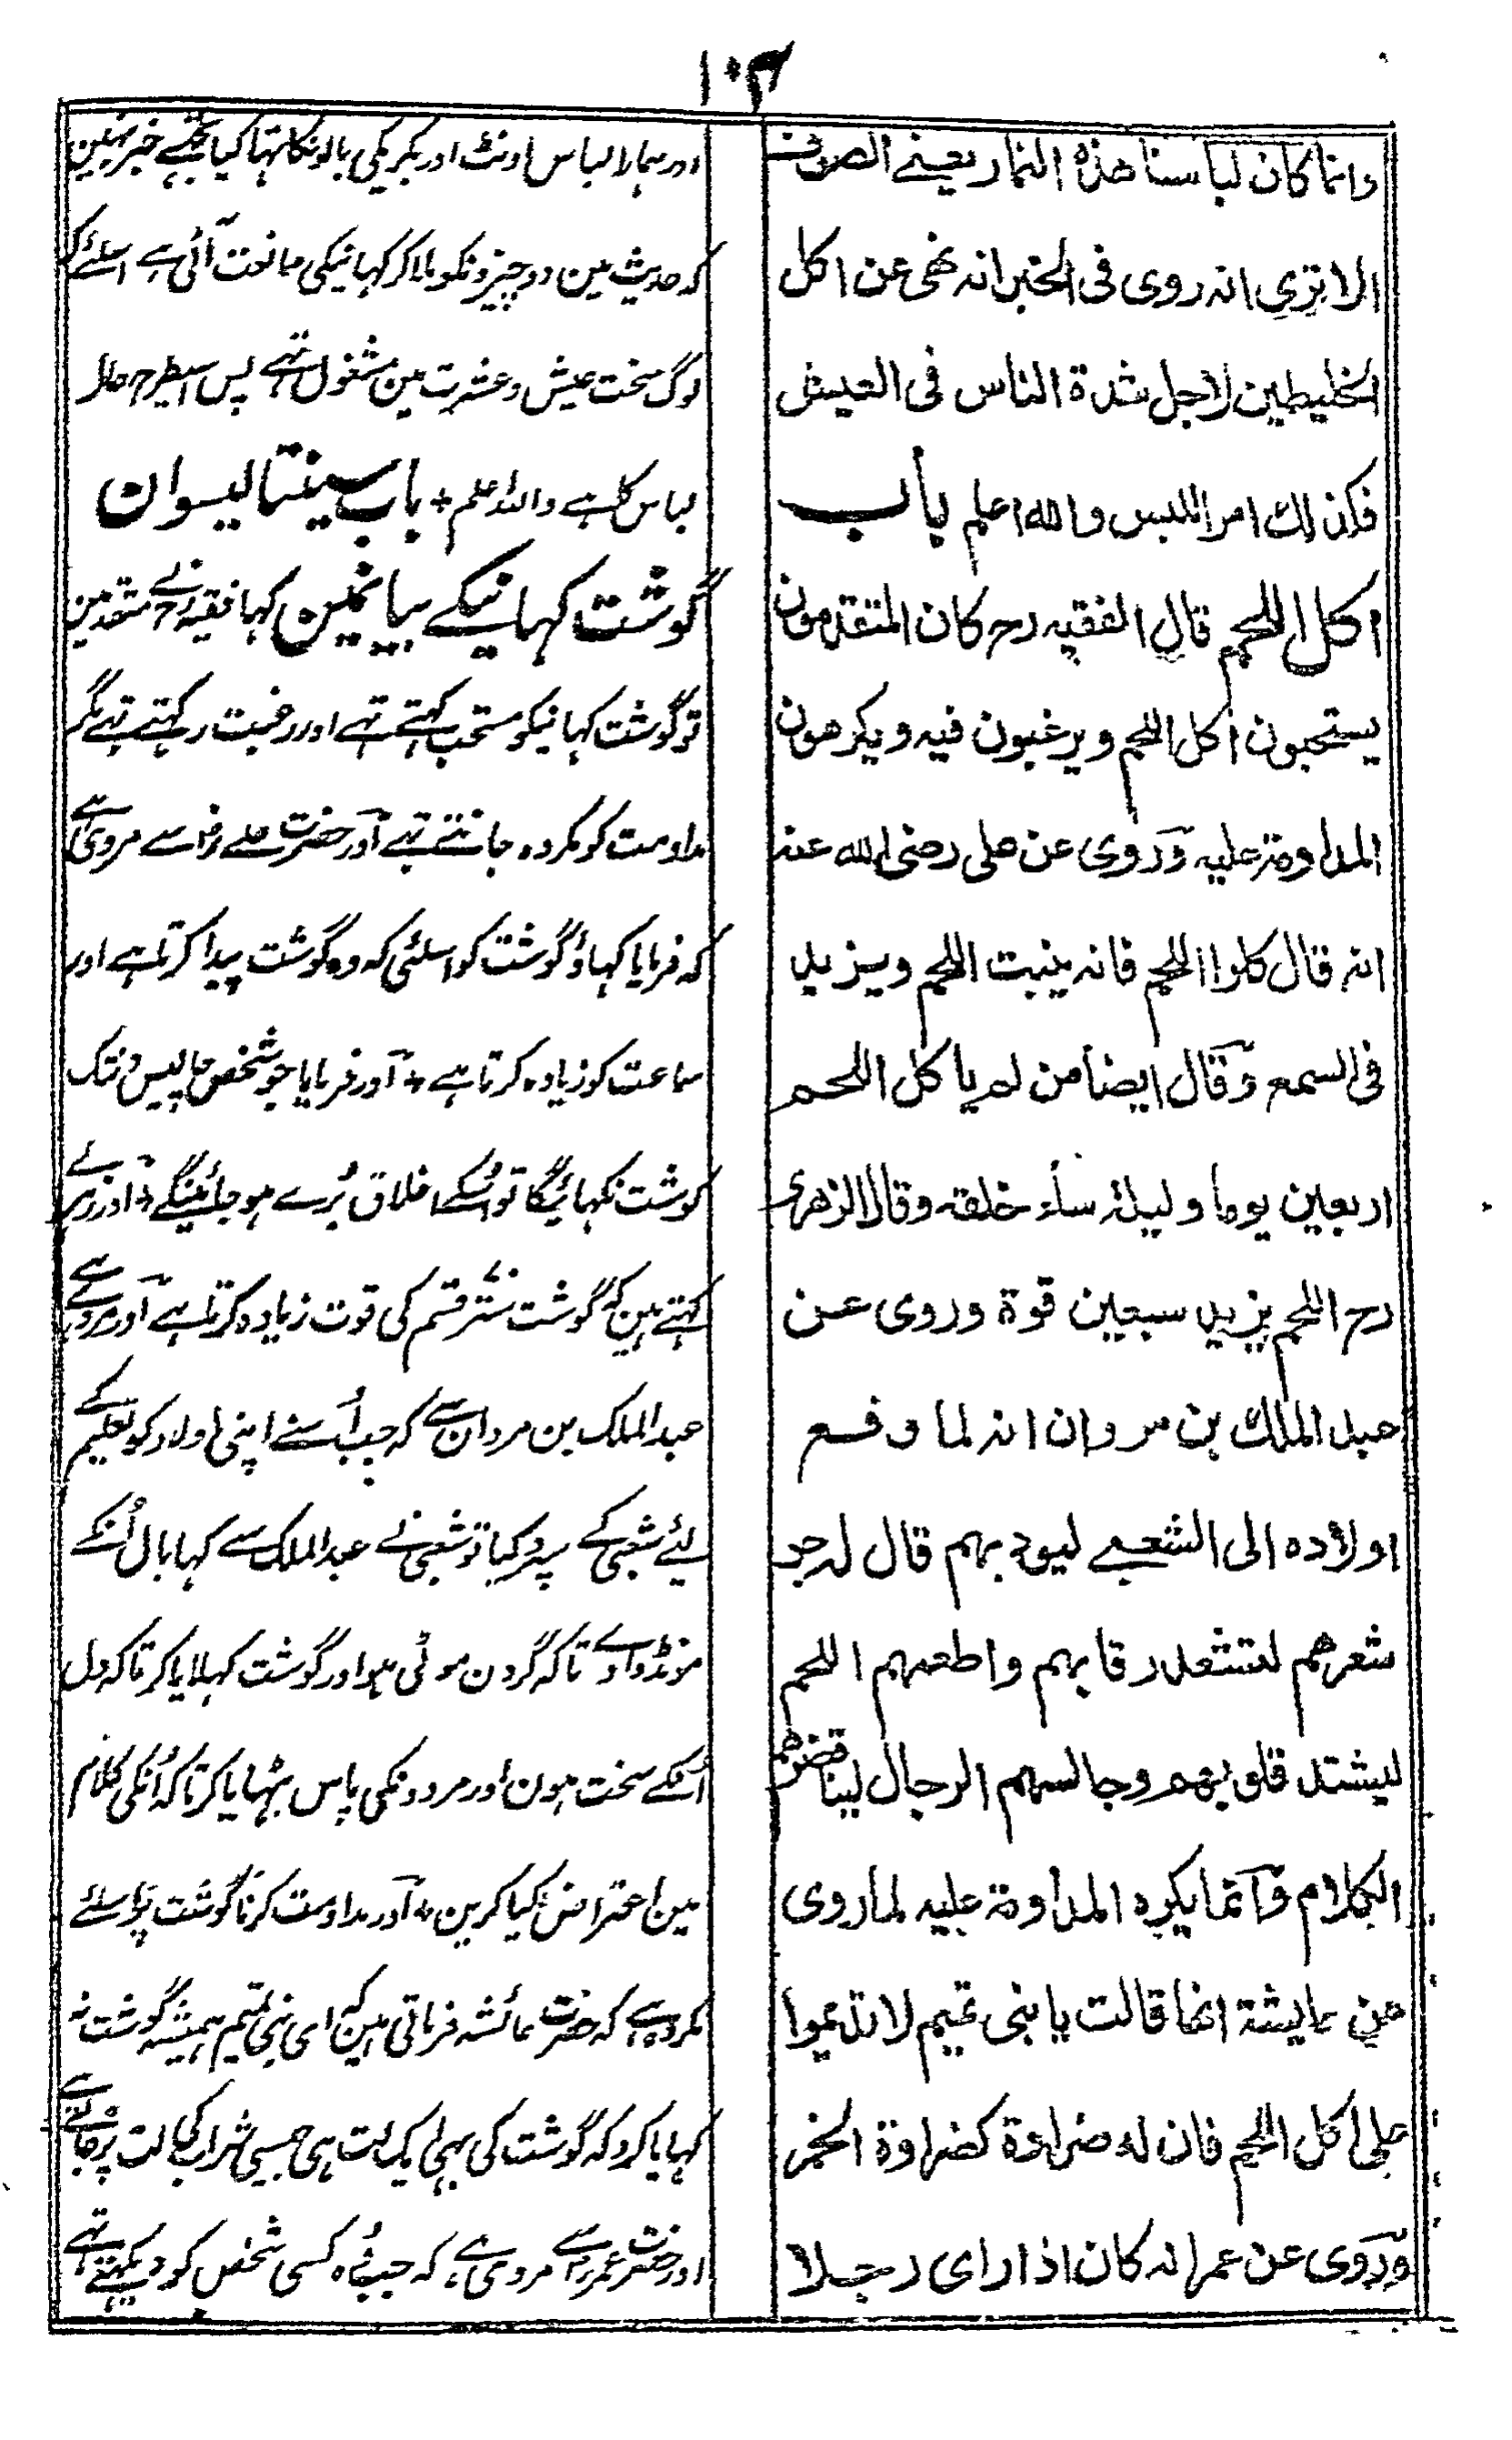 ۱۰۴
وانما كان لباسنا هذه النمار يعنے الصوف
الا ترى انه روى فى الخبر انه نهى عن اكل
الخليطين لاجل شدة الناس فى العيش
فكذلك امر اللبس والله اعلم باب
اكل اللحم قال الفقيه رح كان المتقدمون
يستحبون اكل اللحم ويرغبون فيه ويكرهون
المداومة عليه وروى عن على رضى الله عنه
انه قال كلوا اللحم فانه ينبت اللحم ويزيد
فى السمع وقال ايضا من لم ياكل اللحم
اربعين يوما وليلة ساء خلقه وقال الزهرى
رح اللحم يزيد سبعين قوة وروى عن
عبد الملك بن مروان انه لما دفع
اولاده الى الشعبے ليودبهم قال له جز
شعرهم لتشتد رقابهم واطعمهم اللحم
ليشتد قلوبهم وجالسهم الرجال ليناقضوهم
الكلام وانما يكره المداومة عليه لما روى
عن عايشة انها قالت يا بنى تميم لا تديموا
على اكل اللحم فان له ضراوة كضراوة الخمر
وروى عن عمر انه كان اذا راى رجلا
اور ہمارا لباس اونٹ اور بکریکی بالونکا تہا کیا تجھے خبر نہین
کہ حدیث مین دو چیزونکو ملا کر کہانیکی ممانعت آئی ہے اسلئے کہ
لوگ سخت عیش و عشرت مین مشغول تہے پس اسیطرح حال
لباس کا ہے واللہ اعلم + باب سینتالیسوان
گوشت کہانیکے بیانمین کہا فقیہ رح نے متقدمین
تو گوشت کہانیکو مستحب کہتے تہے اور رغبت رکہتے تہے مگر
مداومت کو مکروہ جانتے تہے اور حضرت علے رض سے مروی ہے
کہ فرمایا کہاؤ گوشت کو اسلئی کہ وہ گوشت پیدا کرتا ہے اور
سماعت کو زیادہ کرتا ہے + اور فرمایا جو شخص چالیس دنتک
گوشت نکہائیگا تو اُسکے اخلاق بُرے ہو جائینگے + اور زہری نے
کہتے ہین کہ گوشت ستر قسم کی قوت زیادہ کرتا ہے اور مروی ہے
عبدالملک بن مروان سے کہ جب اُسنے اپنی اولاد کو تعلیم کے
لیٔے شعبی کے سپرد کیا تو شعبی نے عبدالملک سے کہا بال اُنکے
مونڈوادے تاکہ گردن موٹی ہو اور گوشت کہلایا کر تاکہ دل
اُنکے سخت ہون اور مردونکی پاس بٹہایا کر تاکہ اُنکی کلام
مین اعتراض کیا کرین + اور مداومت کرنا گوشت پر اسلئے
مکروہ ہے کہ حضرت عائشہ فرماتی ہین کہ ای بنی تمیم ہمیشہ گوشت نہ
کہایا کرو کہ گوشت کی بہی ایک لت ہی جیسی شراب کی لت پڑ جاتی ہے
اور حضرت عمر رض سے مروی ہے کہ جب وہ کسی شخص کو دیکہتے تہے